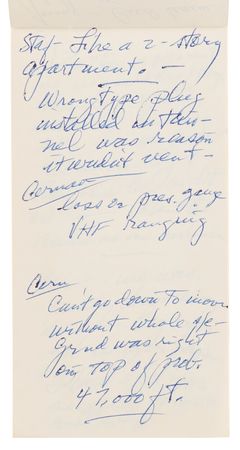 Staf- Like a 2-story
apartment. -
Wrong type plug
installed on tun-
nel was reason
it wouldn't vent -
Cernan
loss on pres. gaug
VHF ranging
Cern
Can't go down to moon
without whole s/c
Grnd was right
on top of prob.
47,000 ft.